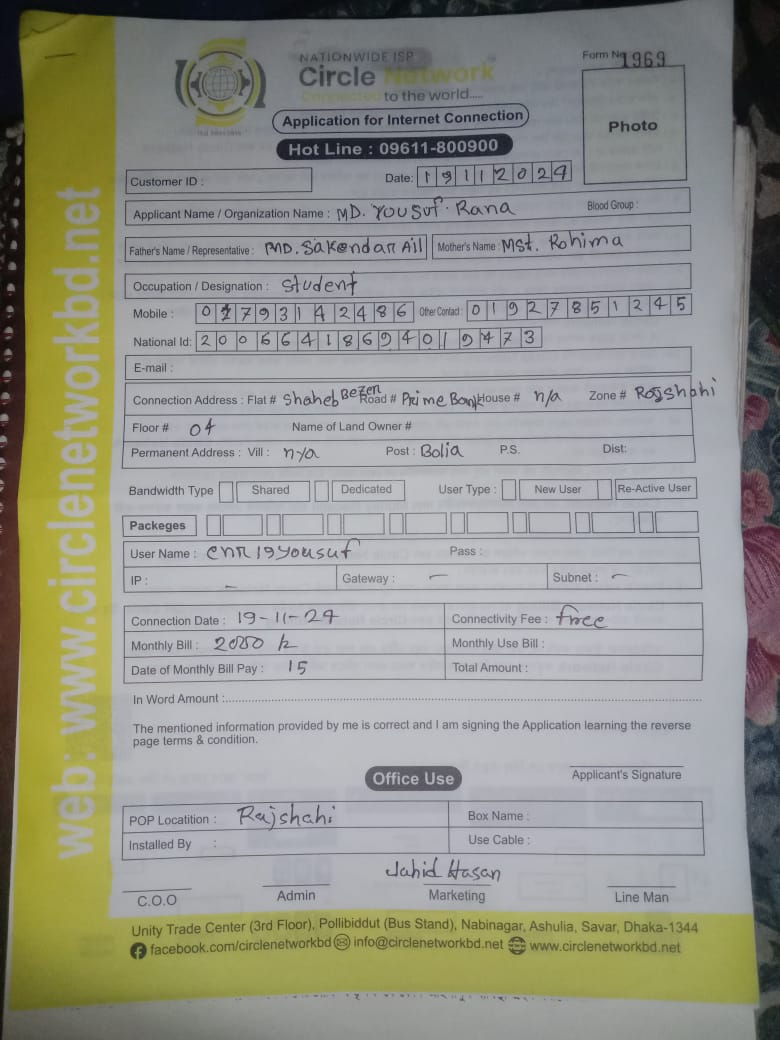 NATIONWIDE ISP
Circle Network
Connected to the world.....
Form No 1969
Application for Internet Connection
Hot Line : 09611-800900
Photo
Customer ID :
Date: 19112024
Applicant Name / Organization Name : MD. Yousuf Rana Blood Group :
Father's Name / Representative : MD. Sakendar Ali Mother's Name : Mst. Rohima
Occupation / Designation : Student
Mobile : 01793142486 Other Contact : 01927851245
National Id: 20066418694019473
E-mail :
Connection Address : Flat # Shaheb Bezen Road # Prime Bank House # n/a Zone # Rajshahi
Floor # 04 Name of Land Owner #
Permanent Address : Vill : n/a Post : Bolia P.S. Dist:
Bandwidth Type Shared Dedicated User Type : New User Re-Active User
Packeges
User Name : cnr19yousuf Pass :
IP : – Gateway : – Subnet : –
Connection Date : 19-11-24 Connectivity Fee : free
Monthly Bill : Monthly Use Bill :
Date of Monthly Bill Pay : 15 Total Amount :
In Word Amount :
The mentioned information provided by me is correct and I am signing the Application learning the reverse
page terms & condition.
Applicant's Signature
Office Use
POP Locatition : Rajshahi Box Name :
Installed By : Use Cable :
Jahid Hasan
C.O.O Admin Marketing Line Man
Unity Trade Center (3rd Floor), Pollibiddut (Bus Stand), Nabinagar, Ashulia, Savar, Dhaka-1344
facebook.com/circlenetworkbd info@circlenetworkbd.net www.circlenetworkbd.net
web: www.circlenetworkbd.net